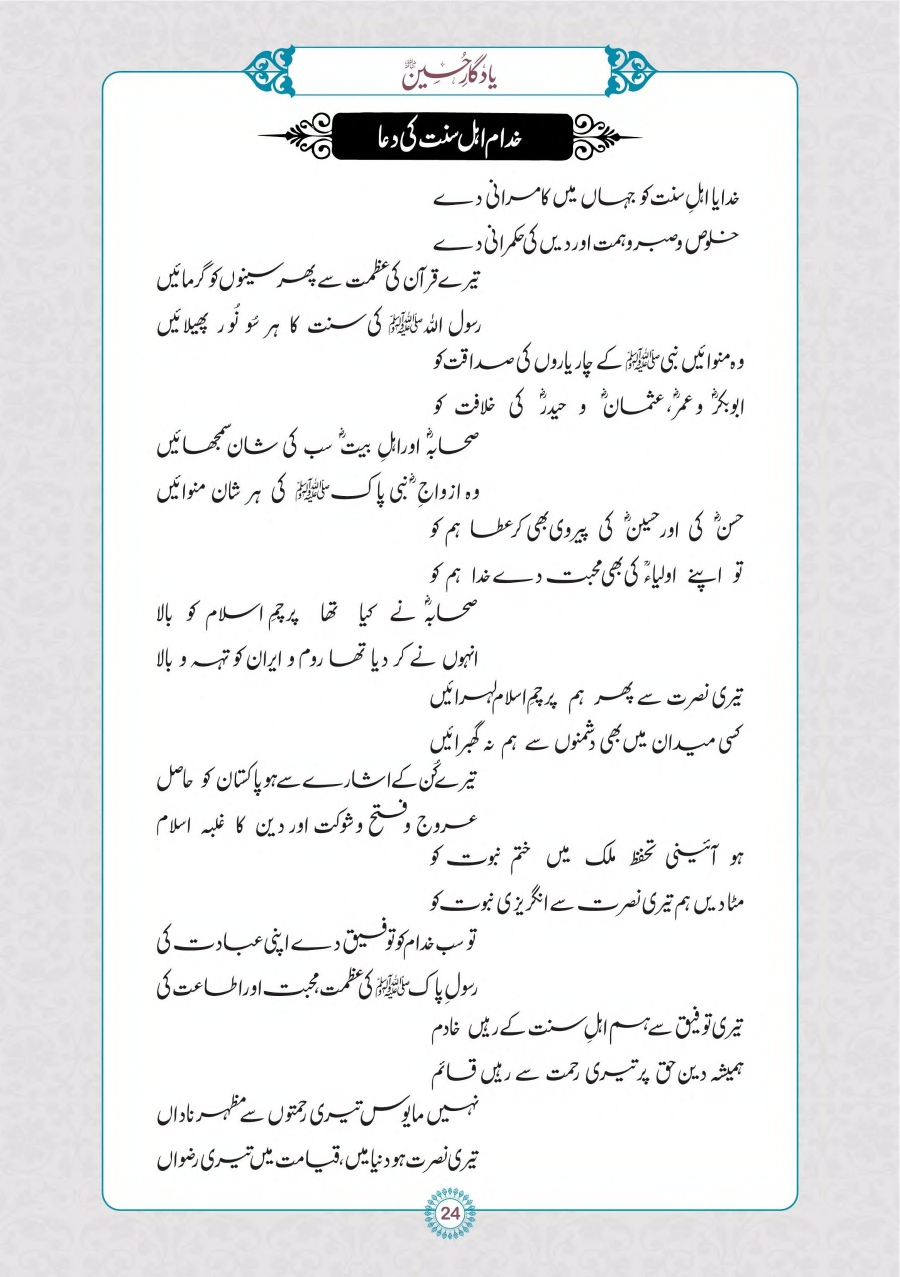 یادگارِ حُسین ؓ
خدام اہل سنت کی دعا
خدایا اہلِ سنت کو جہاں میں کامرانی دے
خلوص و صبر و ہمت اور دیں کی حکمرانی دے
تیرے قرآن کی عظمت سے پھر سینوں کو گرمائیں
رسول اللہ ﷺ کی سنت کا ہر سُو نُور پھیلائیں
وہ منوائیں نبی ﷺ کے چار یاروں کی صداقت کو
ابوبکرؓ و عمرؓ، عثمانؓ و حیدرؓ کی خلافت کو
صحابہؓ اور اہلِ بیتؓ سب کی شان سمجھائیں
وہ ازواجِؓ نبی پاک ﷺ کی ہر شان منوائیں
حسنؓ کی اور حسینؓ کی پیروی بھی کر عطا ہم کو
تو اپنے اولیاءؒ کی بھی محبت دے خدا ہم کو
صحابہؓ نے کیا تھا پرچمِ اسلام کو بالا
انہوں نے کر دیا تھا روم و ایران کو تہہ و بالا
تیری نصرت سے پھر ہم پرچمِ اسلام لہرائیں
کسی میدان میں بھی دشمنوں سے ہم نہ گھبرائیں
تیرے کُن کے اشارے سے ہو پاکستان کو حاصل
عروج و فتح و شوکت اور دین کا غلبہ اسلام
ہو آئینی تحفظ ملک میں ختم نبوت کو
مٹا دیں ہم تیری نصرت سے انگریزی نبوت کو
تو سب خدام کو توفیق دے اپنی عبادت کی
رسولِ پاک ﷺ کی عظمت، محبت اور اطاعت کی
تیری توفیق سے ہم اہلِ سنت کے رہیں خادم
ہمیشہ دین حق پر تیری رحمت سے رہیں قائم
نہیں مایوس تیری رحمتوں سے مظہر ناداں
تیری نصرت ہو دنیا میں، قیامت میں تیری رضواں
24